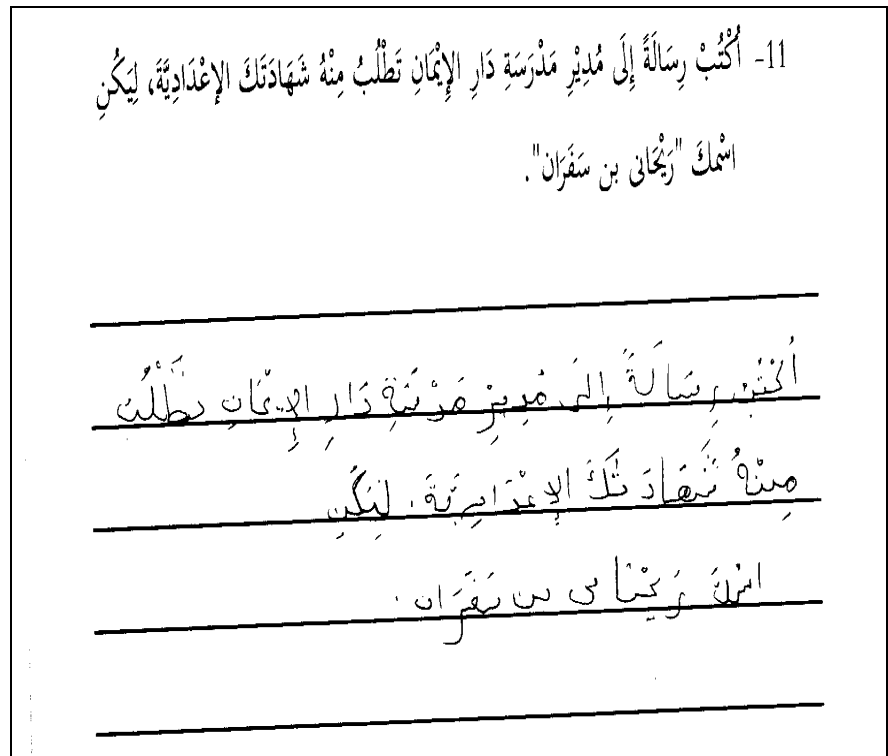 11- أُكْتُبْ رِسَالَةً إِلَى مُدِيْرِ مَدْرَسَةِ دَارِ الإِيْمَانِ تَطْلُبُ مِنْهُ شَهَادَتَكَ الإعْدَادِيَّةَ، لِيَكُنِ
اسْمكَ "رَيْحَانى بن سَفَرَان".
أُكْتُبْ رِسَالَةً إِلَى مُدِيرْ مَدْ سَةِ دَارِ الإِيْمَانِ تطْلُبُ
مِنْهُ شَهَادَتَكَ الإِعْدَادِيَّةَ. لِيَكُنِ
اسْمكَ رَيْحَانى بن سَفَرَان.